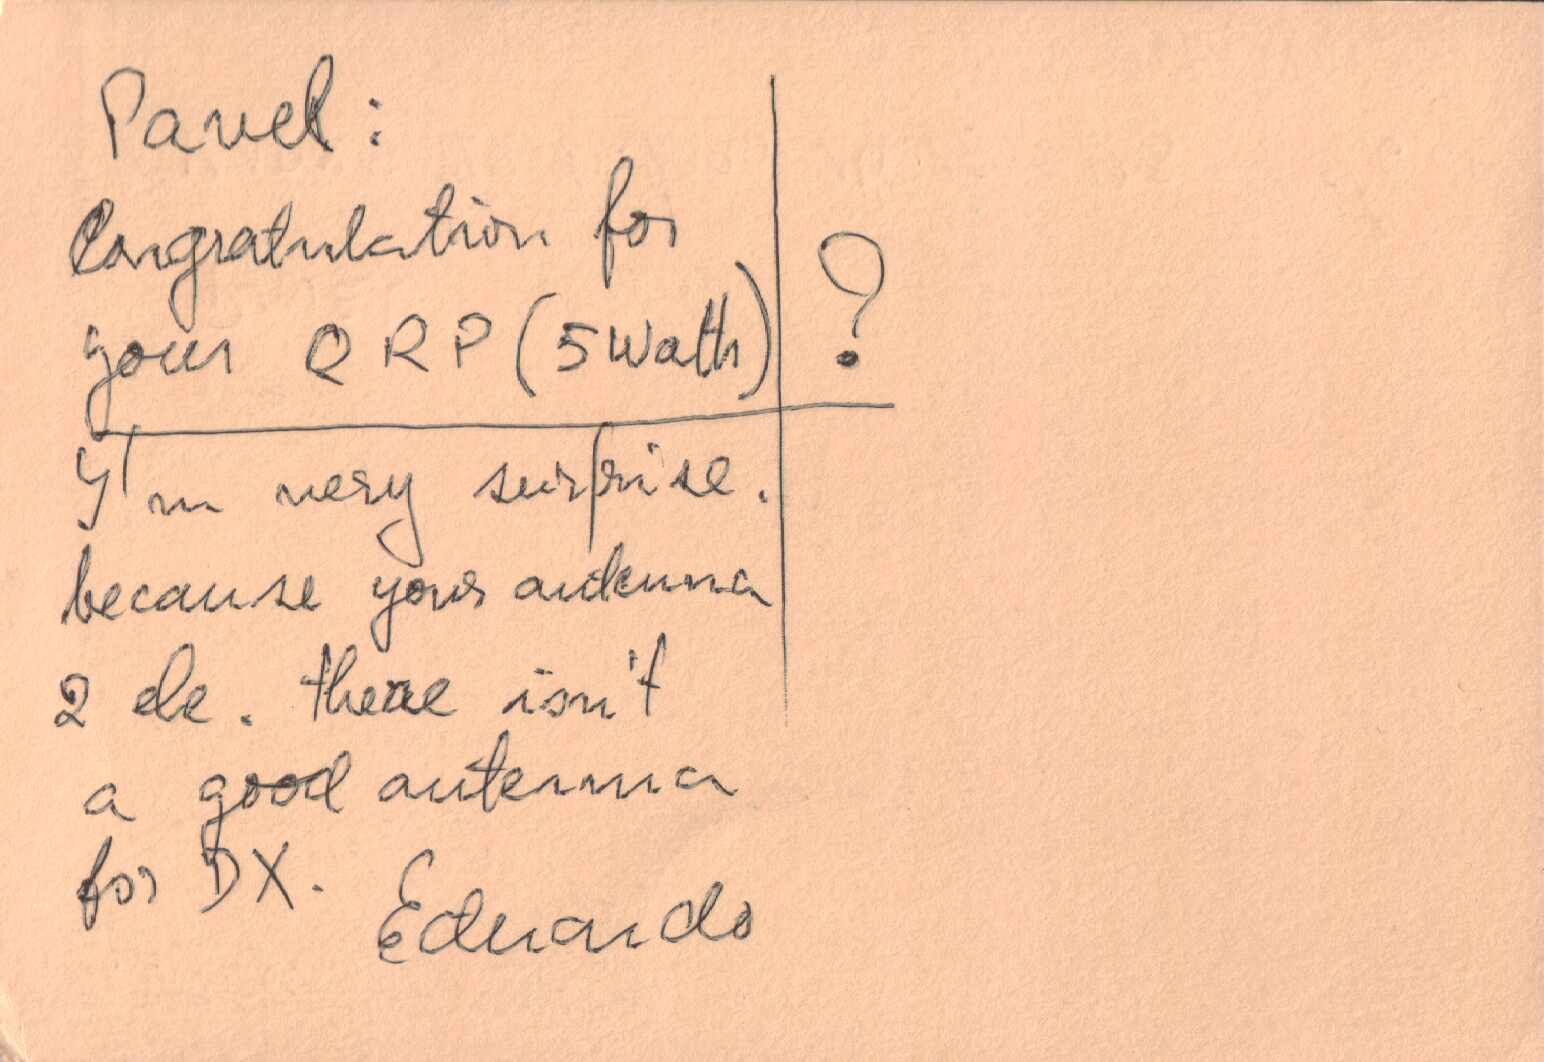 Pavel:
Congratulation for
your QRP (5 Watts) ?
I'm very surprise.
because your antenna
2 ele. there isn't
a good antenna
for DX.
Eduardo